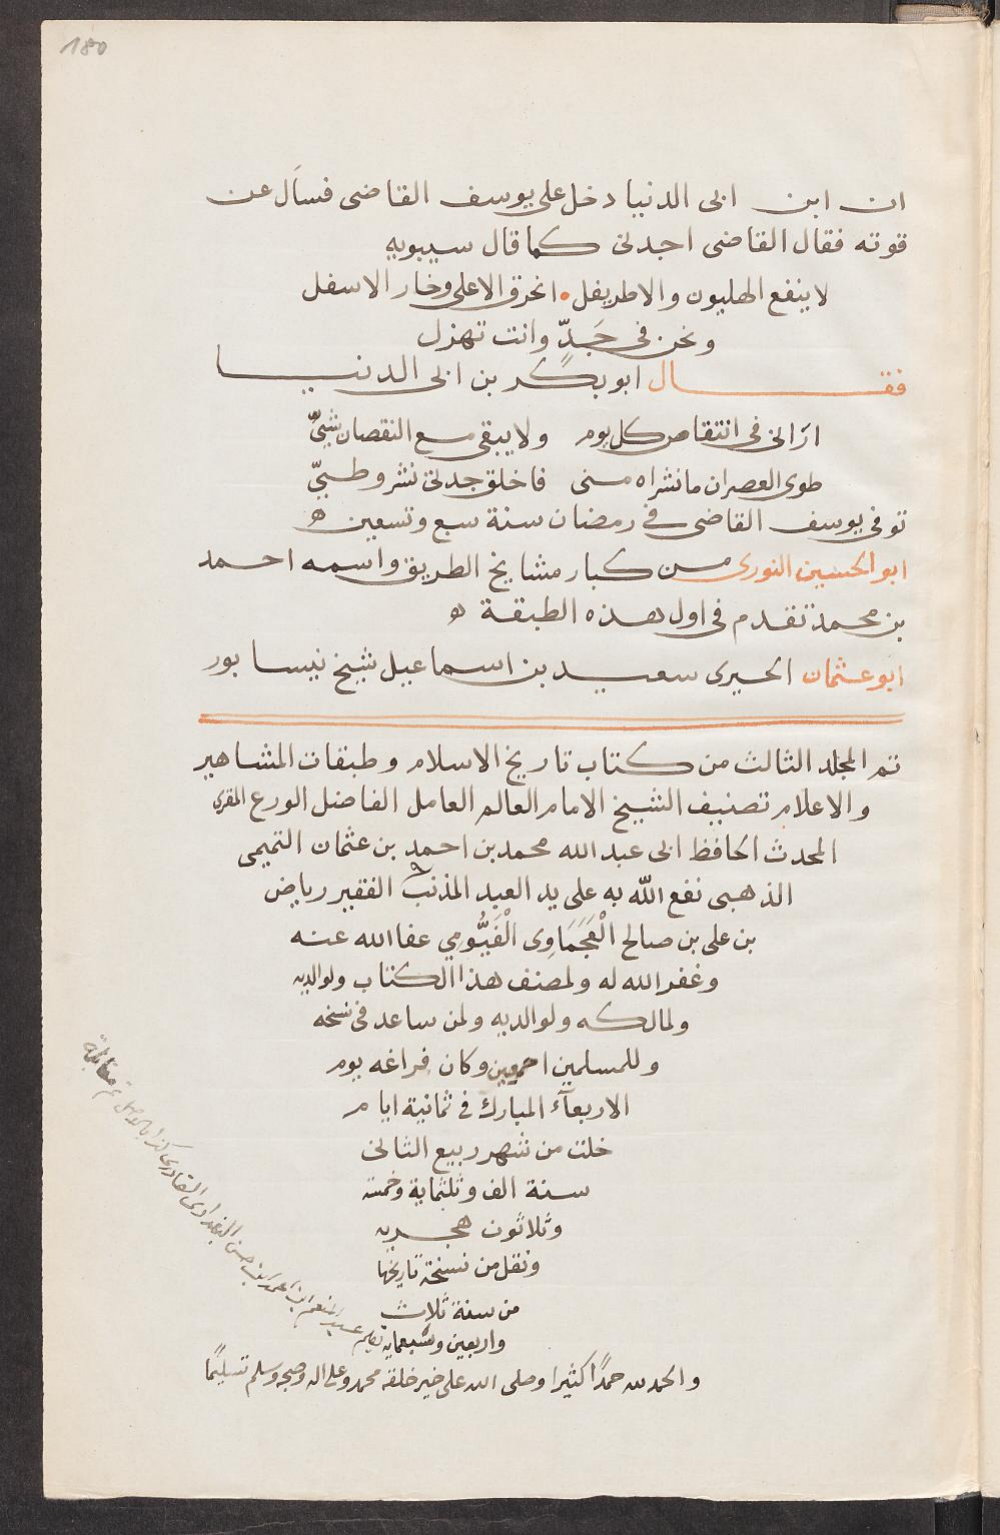 180
ان ابن ابى الدنيا دخل على يوسف القاضى فسأل عن
قوته فقال القاضى اجدنى كما قال سيبويه
لا ينفع الهليون والاطريفل • انخرق الاعلى وخار الاسفل
ونحن فى جَدٍّ وانت تهزل
فقال ابو بكر بن ابى الدنيا
ارانى فى انتقاص كل يوم ولا يبقى مع النقصان شيّ
طوى العصران ما نشراه منى فاخلق جدتى نشر وطيّ
توفى يوسف القاضى فى رمضان سنة سبع وتسعين ه
ابو الحسين النورى من كبار مشايخ الطريق واسمه احمد
بن محمد تقدم فى اول هذه الطبقة ه
ابو عثمان الحيرى سعيد بن اسماعيل شيخ نيسابور
تم المجلد الثالث من كتاب تاريخ الاسلام وطبقات المشاهير
والاعلام تصنيف الشيخ الامام العالم العامل الفاضل الورع المقرى
المحدث الحافظ ابى عبد الله محمد بن احمد بن عثمان التميمى
الذهبى نفع اللّه به على يد العبد المذنب الفقير رياض
بن على بن صالح الْعَجَمَاوِى الْفَيُّومي عفا الله عنه
وغفر الله له ولمصنف هذا الكتاب ولوالديه
ولمالكه ولوالديه ولمن ساعد فى نسخه
وللمسلمين اجمعين وكان فراغه يوم
الاربعآء المبارك فى ثمانية ايام
خلت من شهر ربيع الثانى
سنة الف وثلثماية وخمسة
وثلاثون هجريه
ونقل من نسخة تاريخها
من سنة ثلاث
واربعين وسبعمايه بقلم عبد المنعم ابن احمد ابن حسن البغدادى القادرى كذا بالاصل تم مقابلة
والحمد لله حمدًا كثيرا وصلى الله على خير خلقه محمد وعلى اله وصحبه وسلم تسليمًا